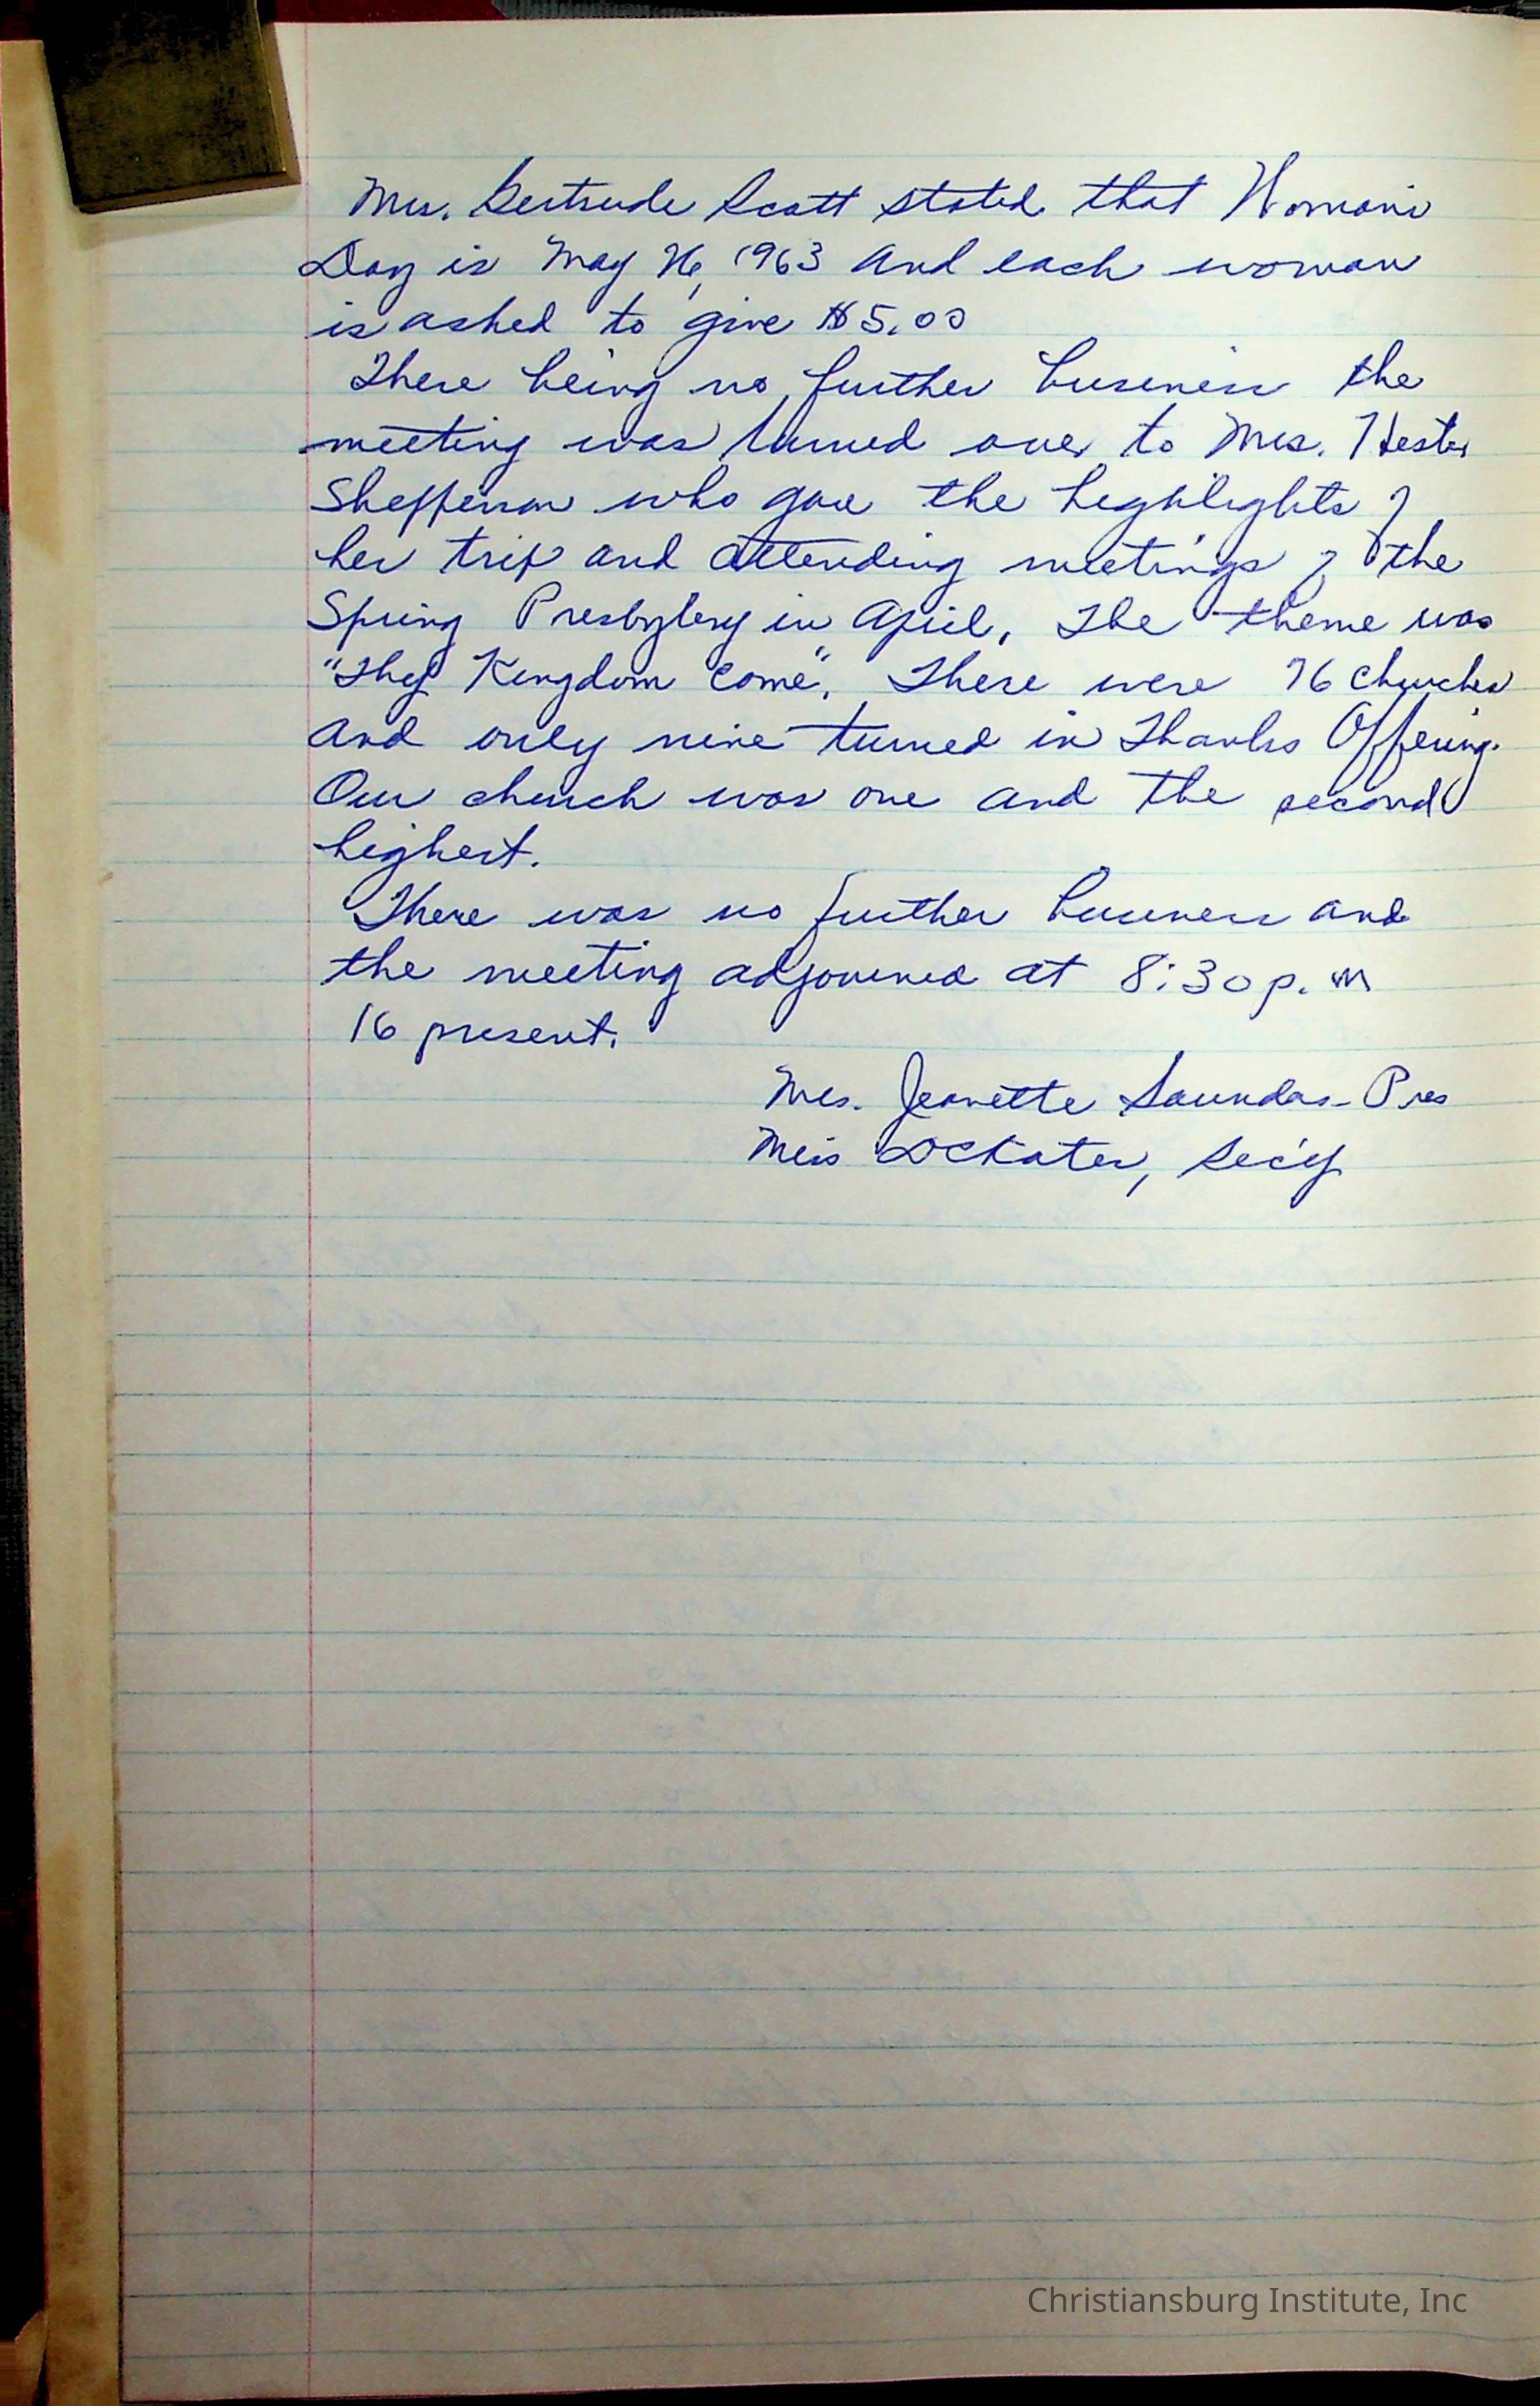 Mrs. Gertrude Scott stated that Woman's
Day is May 26, 1963 and each woman
is asked to give $5.00
There being no further business the
meeting was turned over to Mrs. Hester
Shepperson who gave the highlights of
her trip and attending meetings of the
Spring Presbytery in April. The theme was
"Thy Kingdom Come". There were 76 churches
and only nine turned in Thanks Offering.
Our church was one and the second
highest.
There was no further business and
the meeting adjourned at 8:30 p. m
16 present.
Mrs. Jeanette Saunders - Pres
Miss Sec'y
Christiansburg Institute, Inc